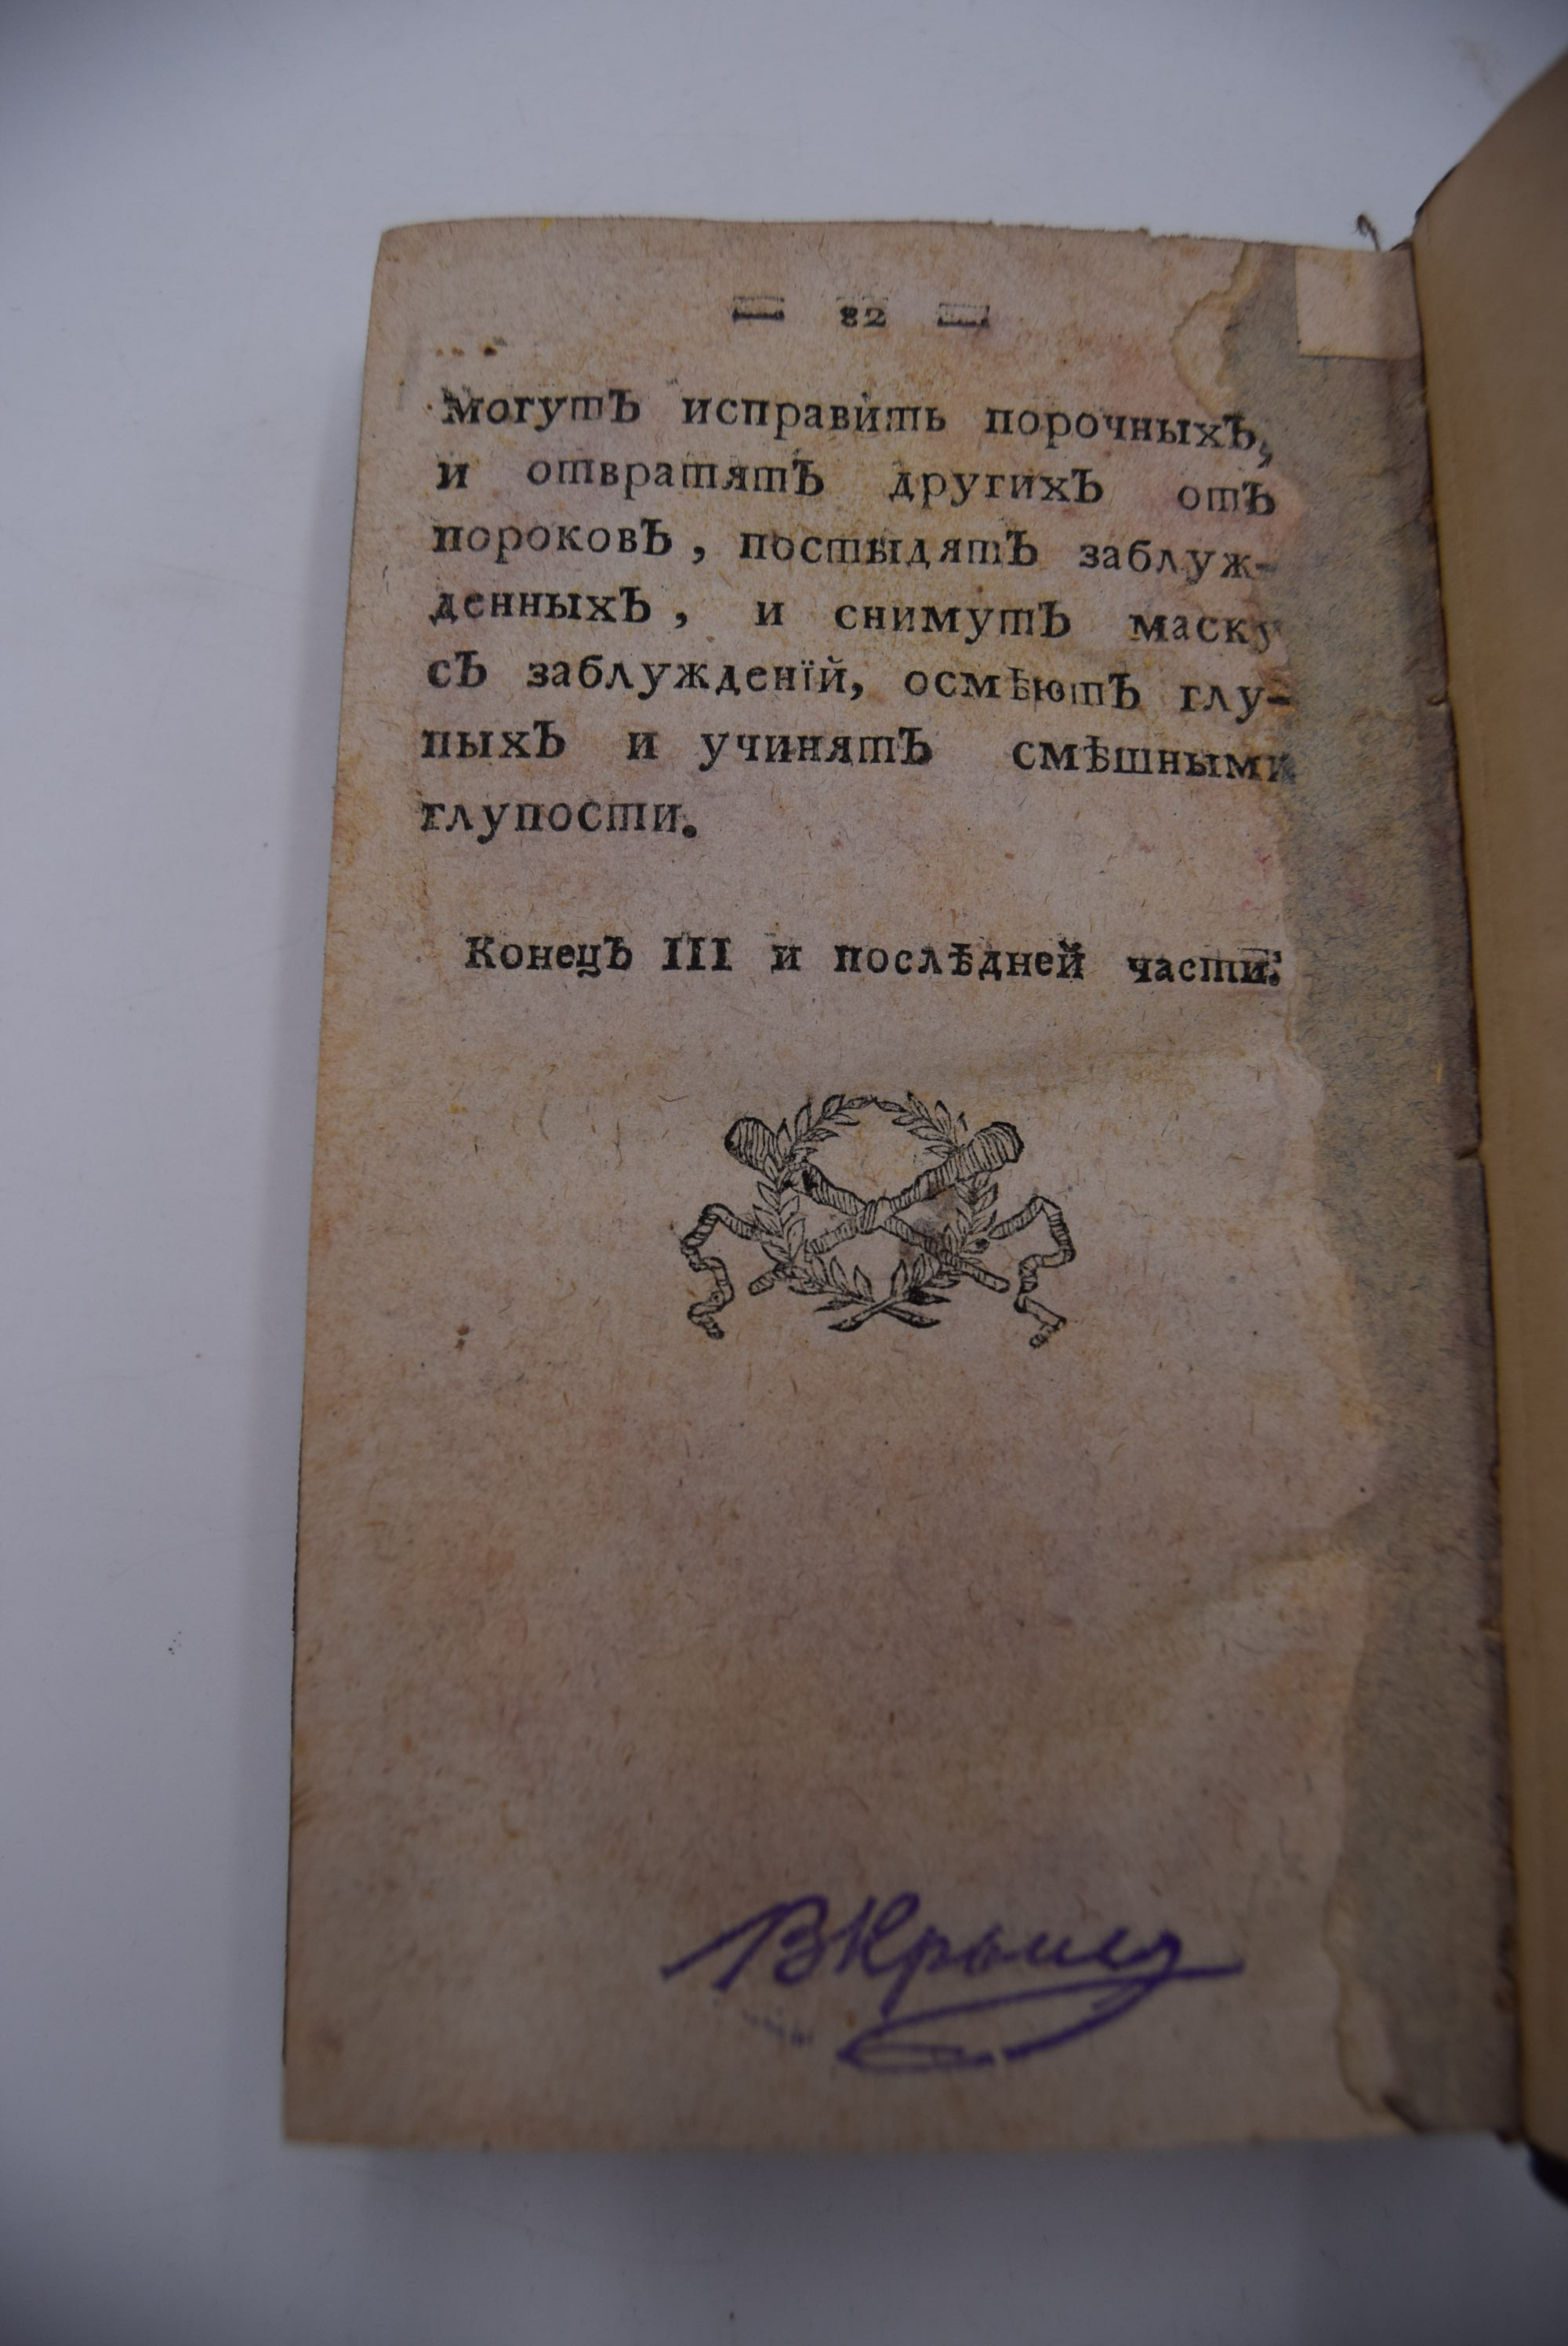 = 82 =
могутъ исправить порочныхъ,
и отвратятъ другихъ отъ
пороковъ, постыдятъ заблуж-
денныхъ, и снимутъ маску
съ заблужденїй, осмѣютъ глу-
пыхъ и учинятъ смѣшными
глупости.
Конецъ III и послѣдней части.